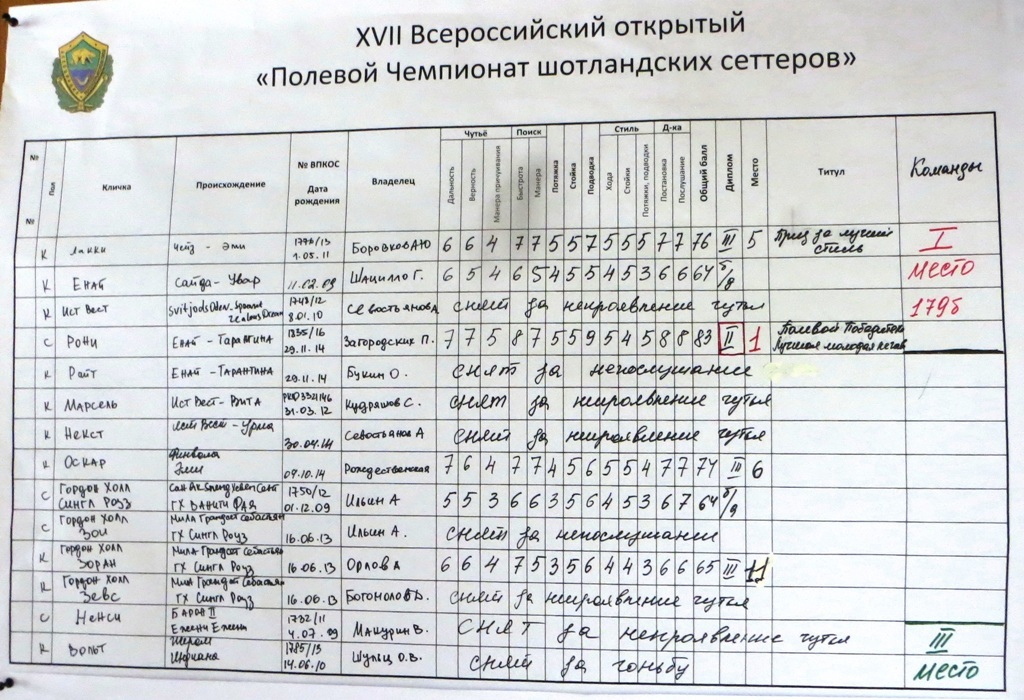 XVII Всероссийский открытый
«Полевой Чемпионат шотландских сеттеров»
№ № Пол Кличка Происхождение № ВПКОС Дата рождения Владелец Чутьё Дальность Верность Манера причуивания Поиск Быстрота Манера Потяжка Стойка Подводка Стиль Хода Стойки Потяжки, подводки Д-ка Постановка Послушание Общий балл Диплом Место Титул Команды
К Чейз - Эми 1.05.11 Боровков АЮ 6 6 4 7 7 5 5 7 5 5 5 7 7 76 III 5 Приз за лучший стиль I
К Енат Сайда - Увар 11.02.09 Шацилло Г. 6 5 4 6 5 4 5 5 4 5 3 6 6 64 б/д место
К Ист Вест 1743/12 8.01.10 Севостьянова снят за непроявление чутья 179б
С Рони Енат - Тарантина 1835/16 29.11.14 Загородских П. 7 7 5 8 7 5 5 9 5 4 5 8 8 83 II 1 Полевой Победитель Лучшая молодая
К Райт Енат - Тарантина 29.11.14 Букин О. снят за непослушание
К Марсель Ист Вест - Вита 31.03.12 Кудряшов С. снят за непроявление чутья
К Некст Ист Вест - Урма 30.04.14 Севостьянов А снят за непроявление чутья
К Оскар Эмми 09.10.14 Рождественская 7 6 4 7 7 4 5 6 5 5 4 7 7 74 III 6
С Гордон Холл Сингл Роуз ГХ Ванити Фая 1750/12 01.12.09 Ильин А 5 5 3 6 6 3 5 6 4 5 3 6 7 64 б/д
С Гордон Холл Зои Мила Грандат Себастьян ГХ Сингл Роуз 16.06.13 Ильин А. снят за непослушание
К Гордон Холл Зоран Мила Грандат Себастьян ГХ Сингл Роуз 16.06.13 Орлов А 6 6 4 7 5 3 5 6 4 4 3 6 6 65 III 11
К Гордон Холл Зевс Мила Грандат Себастьян ГХ Сингл Роуз 16.06.13 снят за непроявление чутья
С Ненси Барон II 1732/11 4.07.09 Мацурин В. снят за непроявление чутья III
К Вольт Шерлом Индиана 1785/13 14.06.10 Шульц О.В. снят за гоньбу место